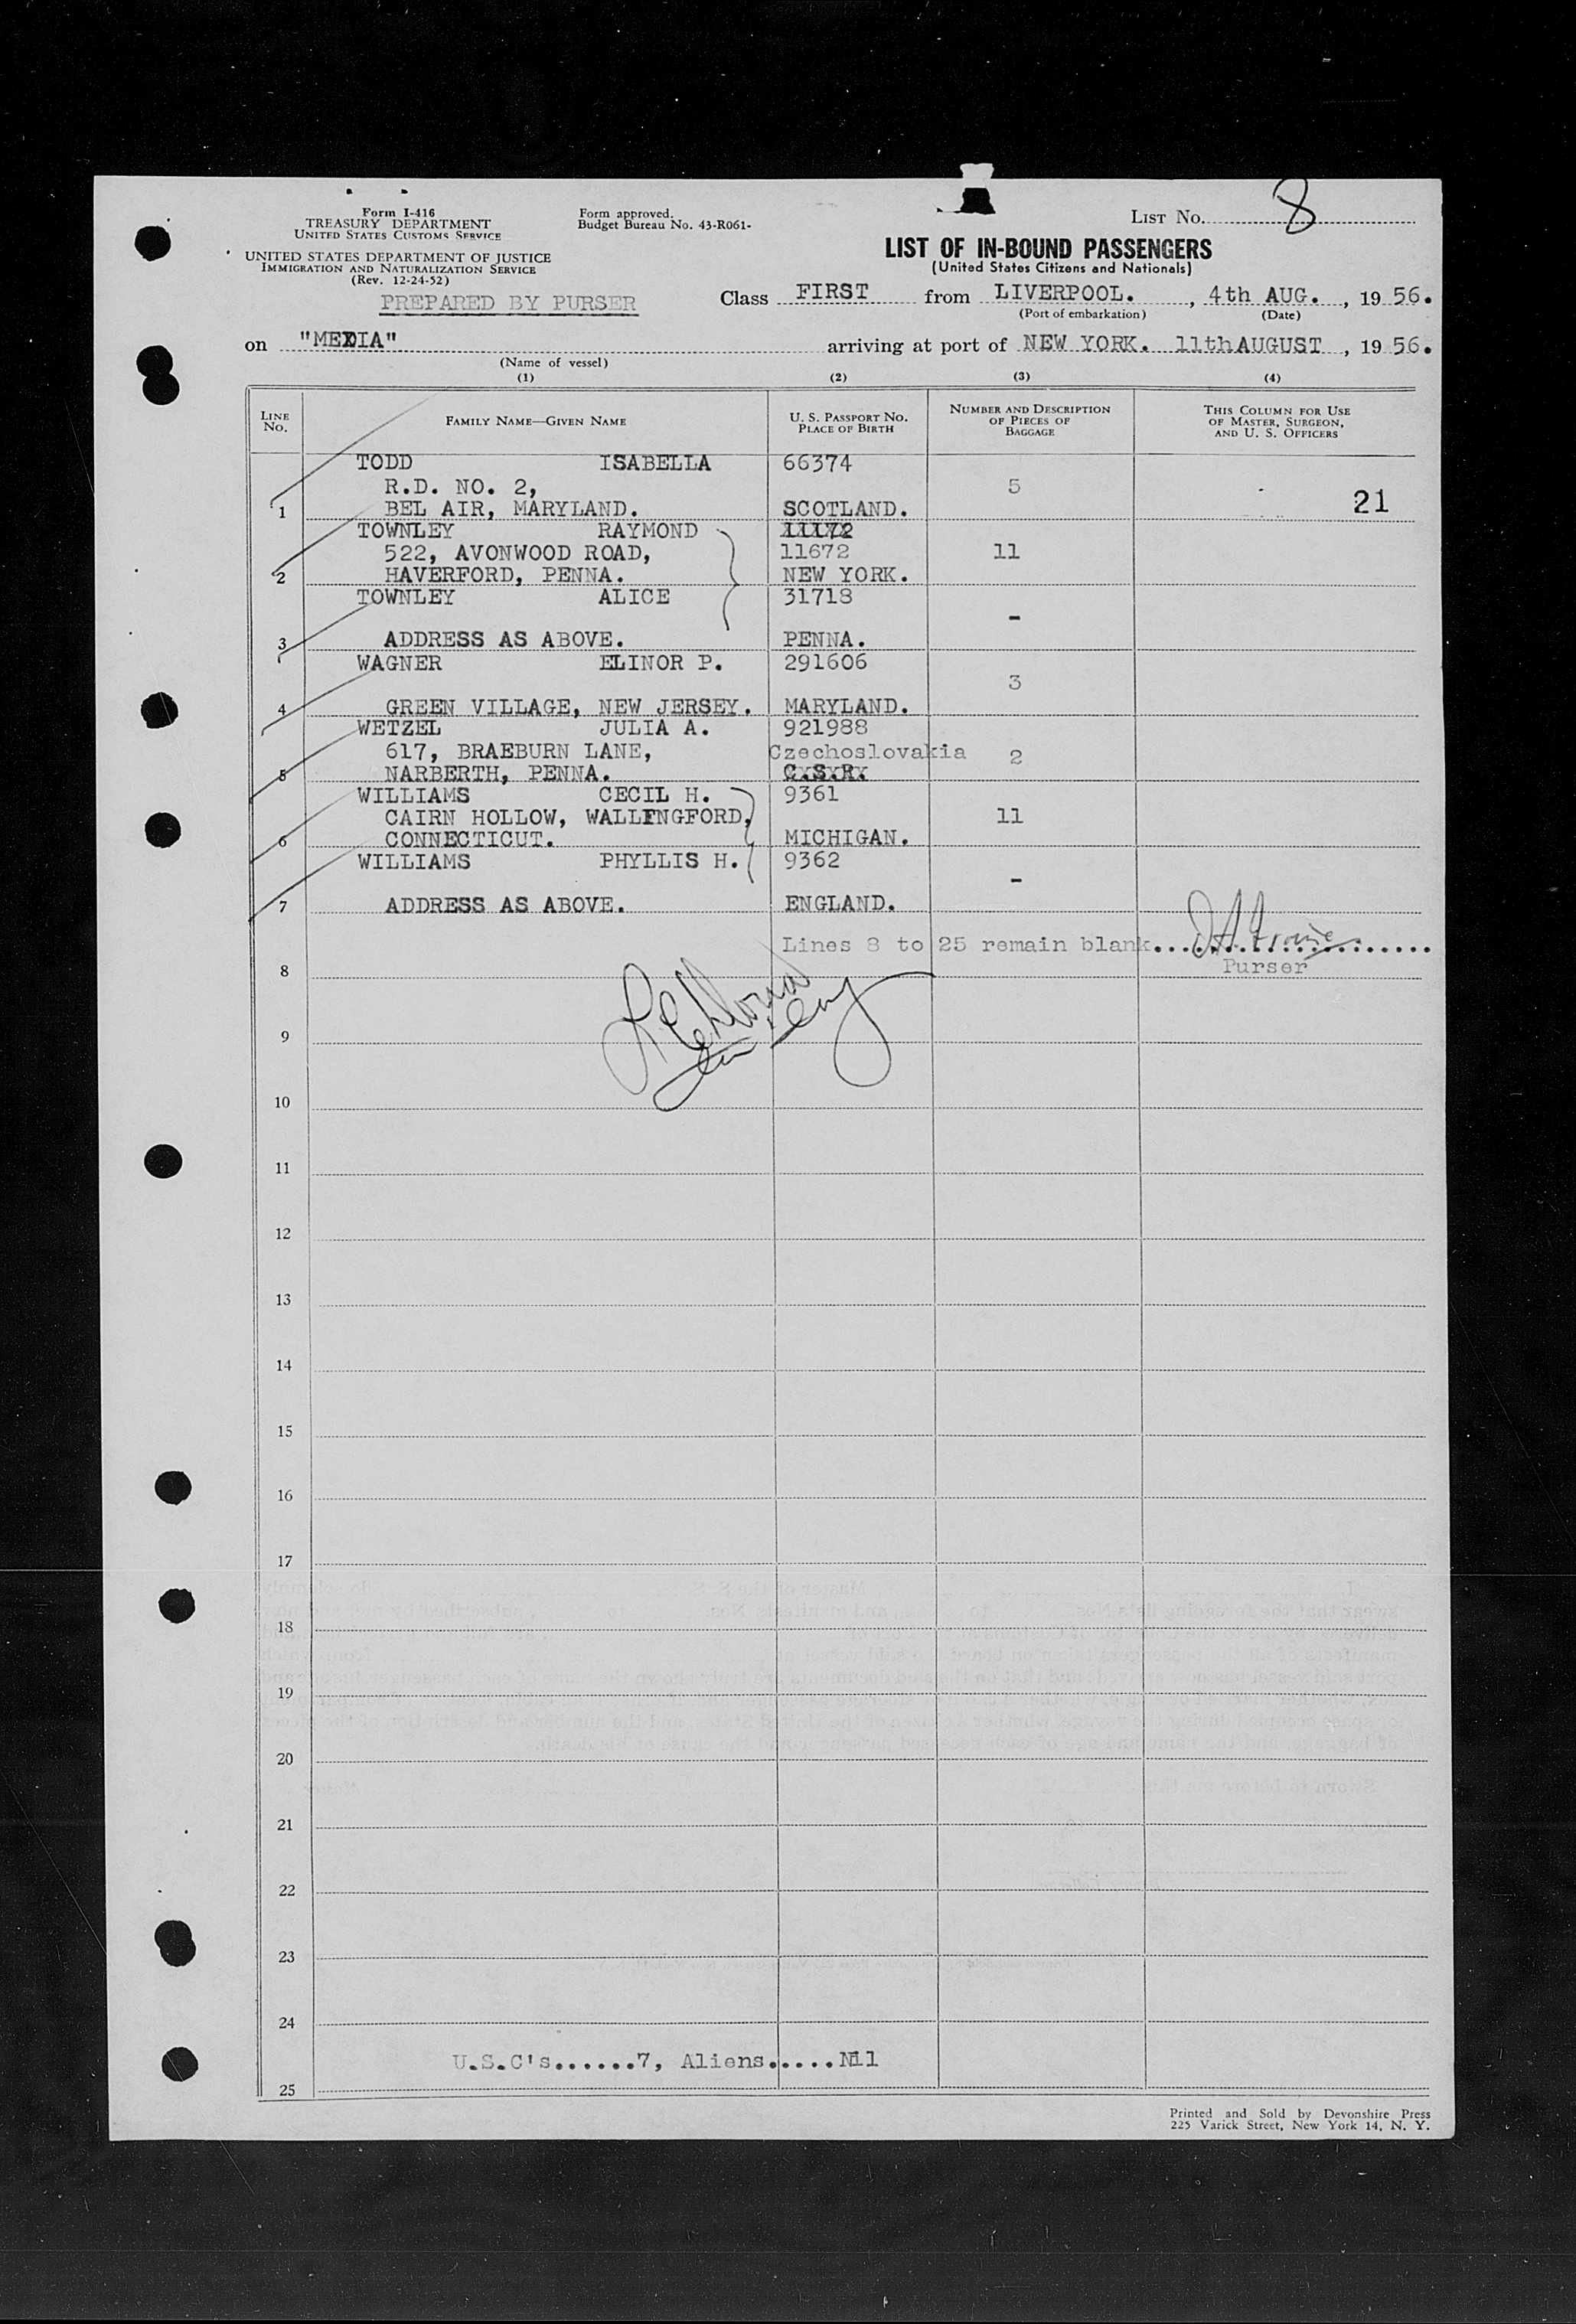 Form I-416
TREASURY DEPARTMENT
UNITED STATES CUSTOMS SERVICE
UNITED STATES DEPARTMENT OF JUSTICE
IMMIGRATION AND NATURALIZATION SERVICE
(Rev. 12-24-52)
PREPARED BY PURSER
Form approved.
Budget Bureau No. 43-R061-
LIST NO. 8
LIST OF IN-BOUND PASSENGERS
(United States Citizens and Nationals)
Class FIRST from LIVERPOOL. , 4th AUG. , 19 56.
(Port of embarkation) (Date)
on "MEDIA" arriving at port of NEW YORK. 11th AUGUST , 19 56.
(Name of vessel)
(1) (2) (3) (4)
LINE NO. FAMILY NAME—GIVEN NAME U. S. PASSPORT NO. PLACE OF BIRTH NUMBER AND DESCRIPTION OF PIECES OF BAGGAGE THIS COLUMN FOR USE OF MASTER, SURGEON, AND U. S. OFFICERS
TODD ISABELLA 66374
R.D. NO. 2, 5
1 BEL AIR, MARYLAND. SCOTLAND. 21
TOWNLEY RAYMOND 11172
522, AVONWOOD ROAD, 11672 11
2 HAVERFORD, PENNA. NEW YORK.
TOWNLEY ALICE 31718
-
3 ADDRESS AS ABOVE. PENNA.
WAGNER ELINOR P. 291606
3
4 GREEN VILLAGE, NEW JERSEY. MARYLAND.
WETZEL JULIA A. 921988
617, BRAEBURN LANE, Czechoslovakia 2
5 NARBERTH, PENNA. C.S.R.
WILLIAMS CECIL H. 9361
CAIRN HOLLOW, WALLINGFORD, 11
6 CONNECTICUT. MICHIGAN.
WILLIAMS PHYLLIS H. 9362
-
7 ADDRESS AS ABOVE. ENGLAND.
Lines 8 to 25 remain blank....................
Purser
8
9
10
11
12
13
14
15
16
17
18
19
20
21
22
23
24
U.S.C's......7, Aliens.....Nil
25
Printed and Sold by Devonshire Press
225 Varick Street, New York 14, N. Y.